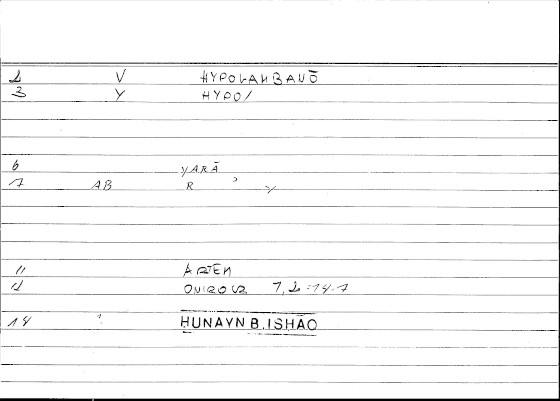 2 V HYPOLAMBANŌ
3 Y HYPO/
6 YARĀ
7 AB R ʾ Y
11 ARTEM
12 ONIROCR 7,2:14.7
14 HUNAYN B. ISHĀQ